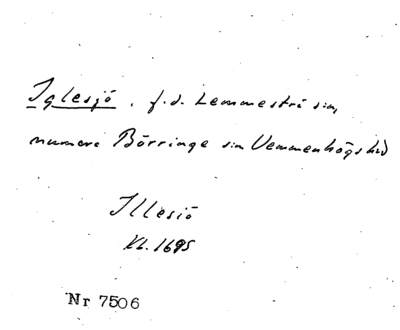 Iglesjö, f.d. Lemmeströ sn,
numera Börringe sn Vemmenhögs hd
Illesiö
Kb. 1695
Nr 7506